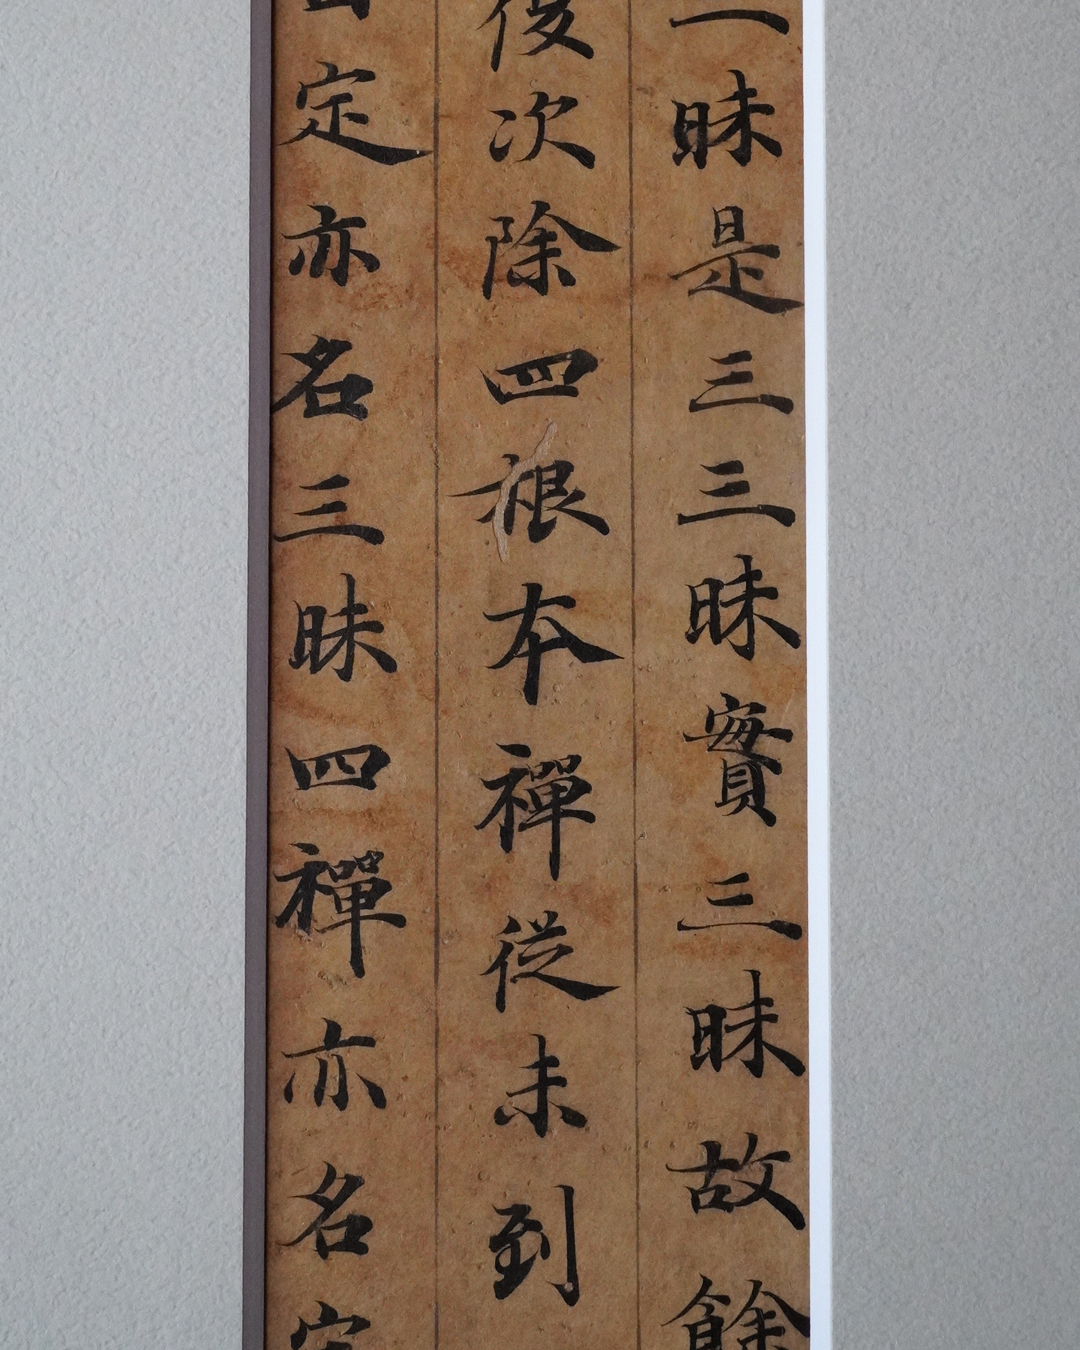 昧是三三昧實三昧故餘
復次除四根本禪從未到
定亦名三昧四禪亦名定